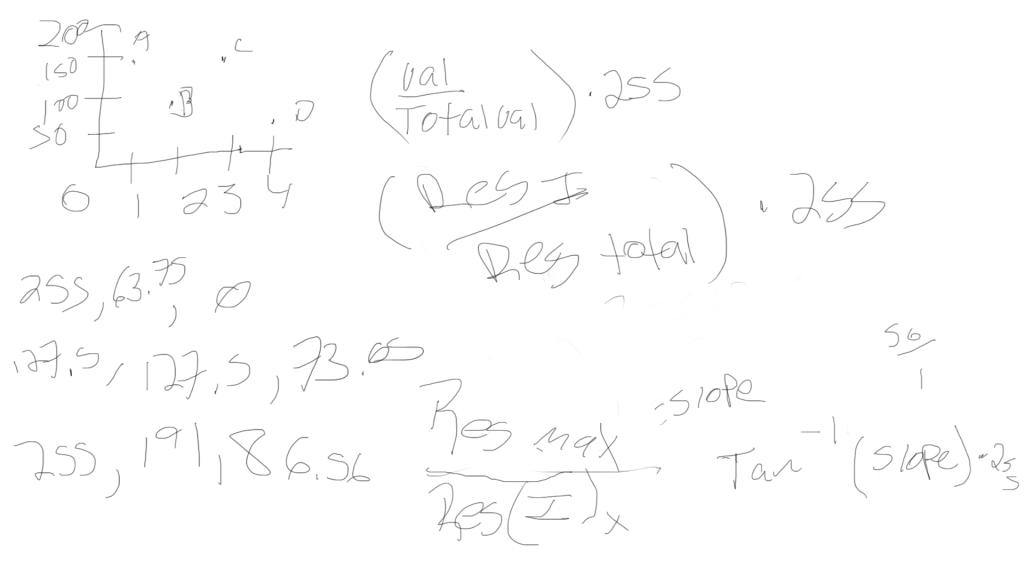 200
150
100
50
A
C
B
D
0 1 2 3 4
(val / Total val) · 255
(Res I / Res total) · 255
255, 63.75, 0
127.5, 127.5, 73.05
255, 191, 86.56
Res max
Res(I)x
:slope
50
1
Tan -1 (slope) · 255